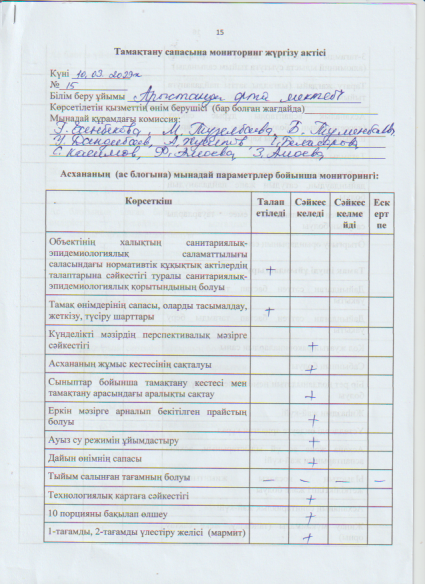 15
Тамақтану сапасына мониторинг жүргізу актісі
Күні 10.03.2023ж
№ 15
Білім беру ұйымы орта мектебі
Көрсетілетін қызметтің өнім берушісі (бар болған жағдайда)
Мынадай құрамдағы комиссия:
Асхананың (ас блогына) мынадай параметрлер бойынша мониторингі:
Көрсеткіш Талап етіледі Сәйкес келеді Сәйкес келмейді Ескертпе
Объектінің халықтың санитариялық-
эпидемиологиялық саламаттылығы
саласындағы нормативтік құқықтық актілердің
талаптарына сәйкестігі туралы санитариялық-
эпидемиологиялық қорытындының болуы +
Тамақ өнімдерінің сапасы, оларды тасымалдау,
жеткізу, түсіру шарттары +
Күнделікті мәзірдің перспективалық мәзірге
сәйкестігі +
Асхананың жұмыс кестесінің сақталуы +
Сыныптар бойынша тамақтану кестесі мен
тамақтану арасындағы аралықты сақтау +
Еркін мәзірге арналып бекітілген прайстың
болуы +
Ауыз су режимін ұйымдастыру +
Дайын өнімнің сапасы +
Тыйым салынған тағамның болуы – – – –
Технологиялық картаға сәйкестігі +
10 порцияны бақылап өлшеу +
1-тағамды, 2-тағамды үлестіру желісі (мармит) +